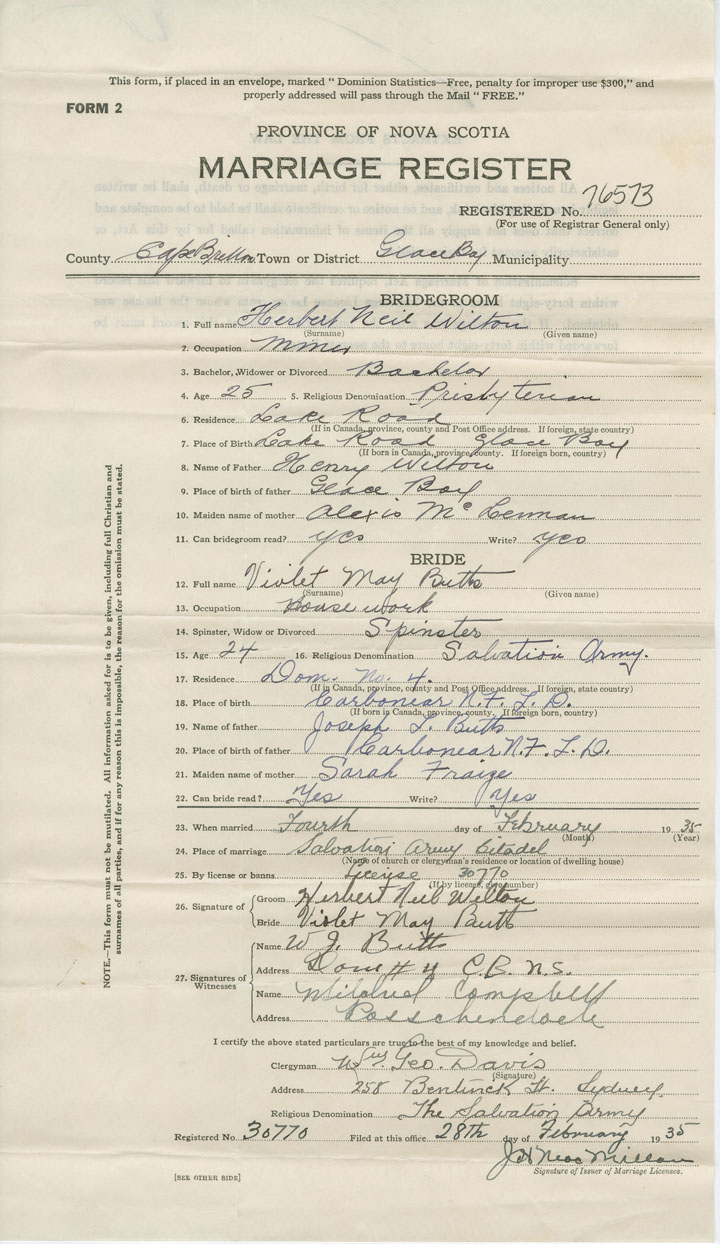 This form, if placed in an envelope, marked " Dominion Statistics—Free, penalty for improper use $300," and
properly addressed will pass through the Mail " FREE."
FORM 2
PROVINCE OF NOVA SCOTIA
MARRIAGE REGISTER
REGISTERED No. 76573
(For use of Registrar General only)
County Cape Britton Town or District Glace Bay Municipality
BRIDEGROOM
1. Full name Herbert Neil Wilton
(Surname) (Given name)
2. Occupation Miner
3. Bachelor, Widower or Divorced Bachelor
4. Age 25 5. Religious Denomination Presbyterian
6. Residence Lake Road
(If in Canada, province, county and Post Office address. If foreign, state country)
7. Place of Birth Lake Road Glace Bay
(If born in Canada, province, county. If foreign born, country)
8. Name of Father Henry Wilton
9. Place of birth of father Glace Bay
10. Maiden name of mother Alexis McLennan
11. Can bridegroom read? yes Write? yes
BRIDE
12. Full name Violet May Butts
(Surname) (Given name)
13. Occupation House work
14. Spinster, Widow or Divorced Spinster
15. Age 24 16. Religious Denomination Salvation Army.
17. Residence Dom. No. 4.
(If in Canada, province, county and Post Office address. If foreign, state country)
18. Place of birth Carbonear N.F.L.D.
(If born in Canada, province, county. If foreign born, country)
19. Name of father Joseph L. Butts
20. Place of birth of father Carbonear N.F.L.D.
21. Maiden name of mother Sarah Fraize
22. Can bride read? Yes Write? Yes
23. When married Fourth day of February 1935
(Month) (Year)
24. Place of marriage Salvation Army Citadel
(Name of church or clergyman's residence or location of dwelling house)
25. By license or banns License 30770
(If by license, give number)
26. Signature of Groom Herbert Neil Wilton
Bride Violet May Butts
27. Signatures of Witnesses Name W J. Butts
Address Dom # 4 C.B. N.S.
Name Mildred Campbell
Address Passchendaele
I certify the above stated particulars are true to the best of my knowledge and belief.
Clergyman Geo. Davis
(Signature)
Address 258 Bentinck St. Sydney
Religious Denomination The Salvation Army
Registered No. 30770 Filed at this office 28th day of February 1935
J H MacMillan
Signature of Issuer of Marriage Licenses.
[SEE OTHER SIDE]
NOTE.—This form must not be mutilated. All information asked for is to be given, including full Christian and
surnames of all parties, and if for any reason this is impossible, the reason for the omission must be stated.